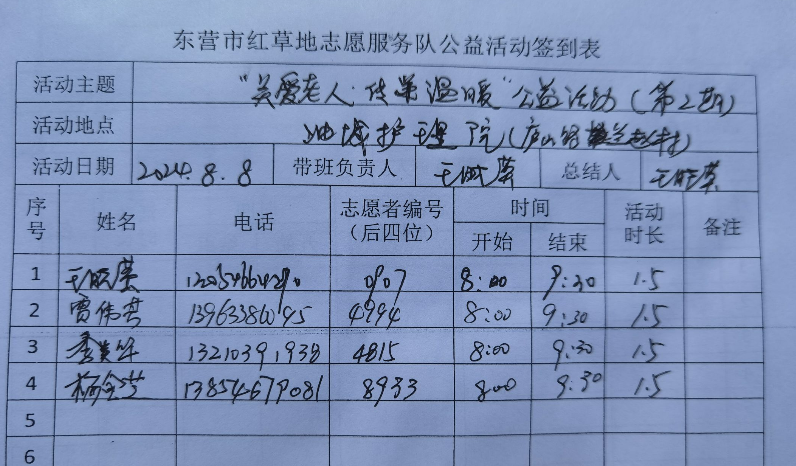 东营市红草地志愿服务队公益活动签到表
活动主题 "关爱老人·传递温暖"公益活动(第2期)
活动地点 油城护理院(庐山路
活动日期 2024.8.8 带班负责人 王晓荣 总结人 王晓荣
序号 姓名 电话 志愿者编号(后四位) 时间 开始 结束 活动时长 备注
1 王晓荣 0907 8:00 9:30 1.5
2 4994 8:00 9:30 1.5
3 13210391938 4815 8:00 9:30 1.5
4 13854679081 8933 8:00 9:30 1.5
5
6